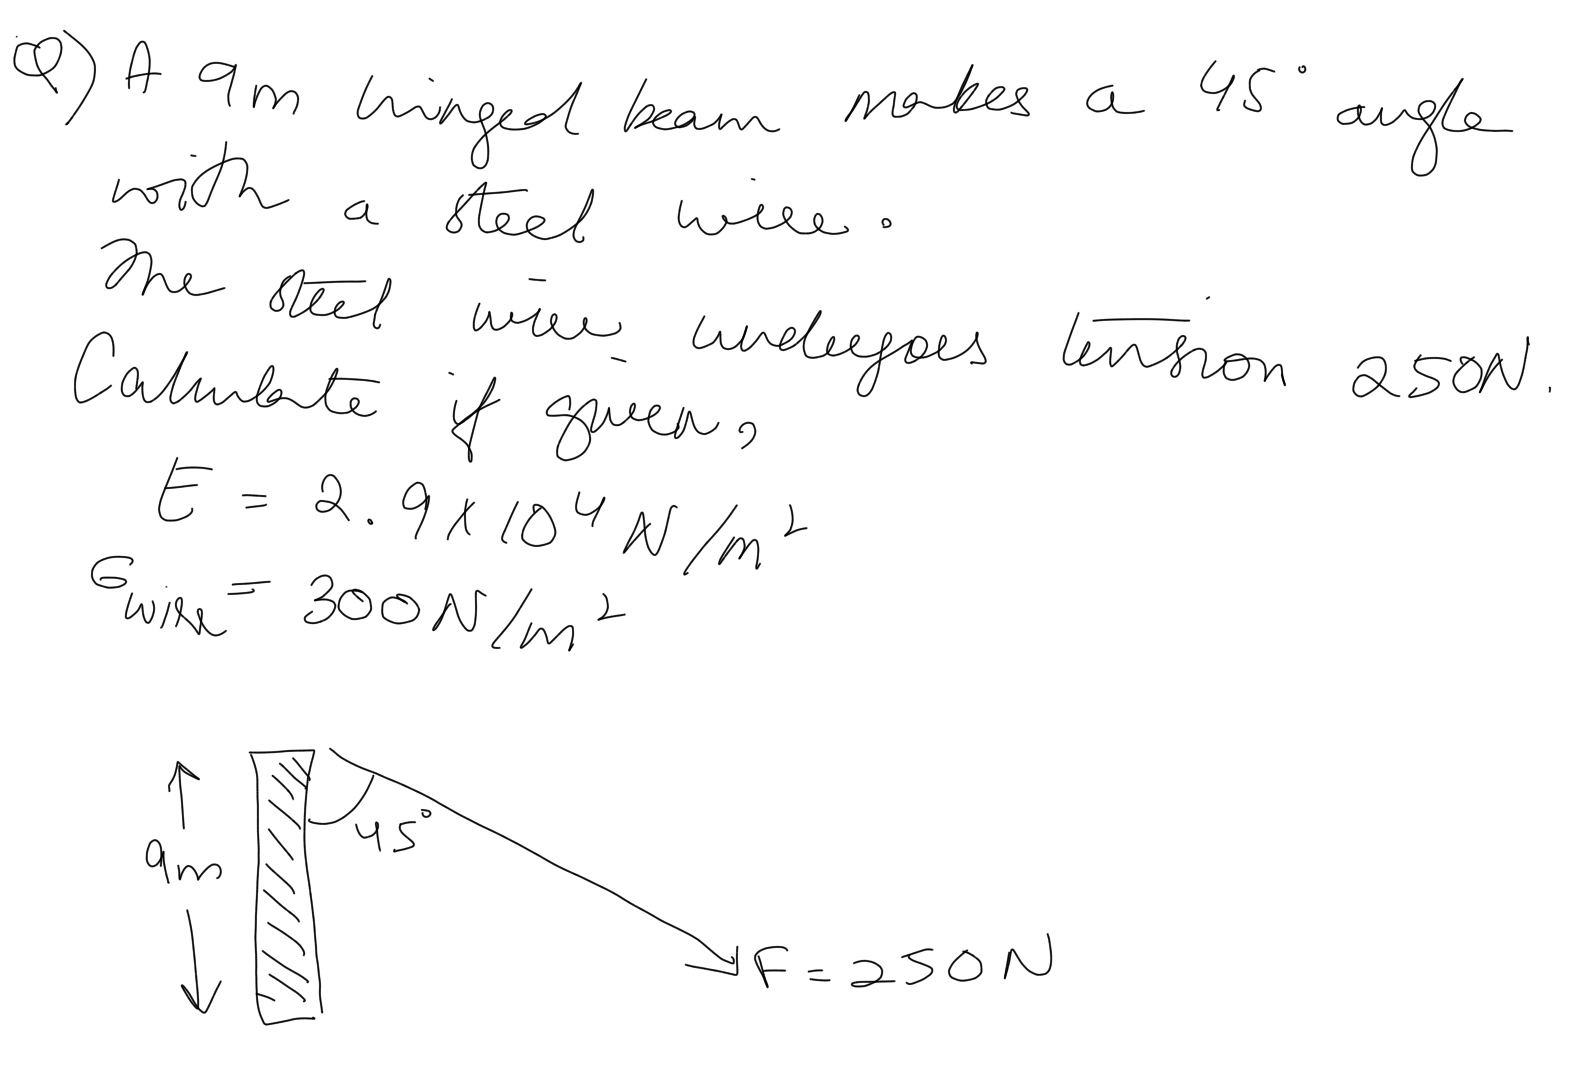 Q) A 9m hinged beam makes a 45° angle
with a steel wire.
The steel wire undergoes tension 250N.
Calculate if given,
E = 2.9 x 10⁴ N/m²
σwire = 300 N/m²
45°
9m
F = 250N